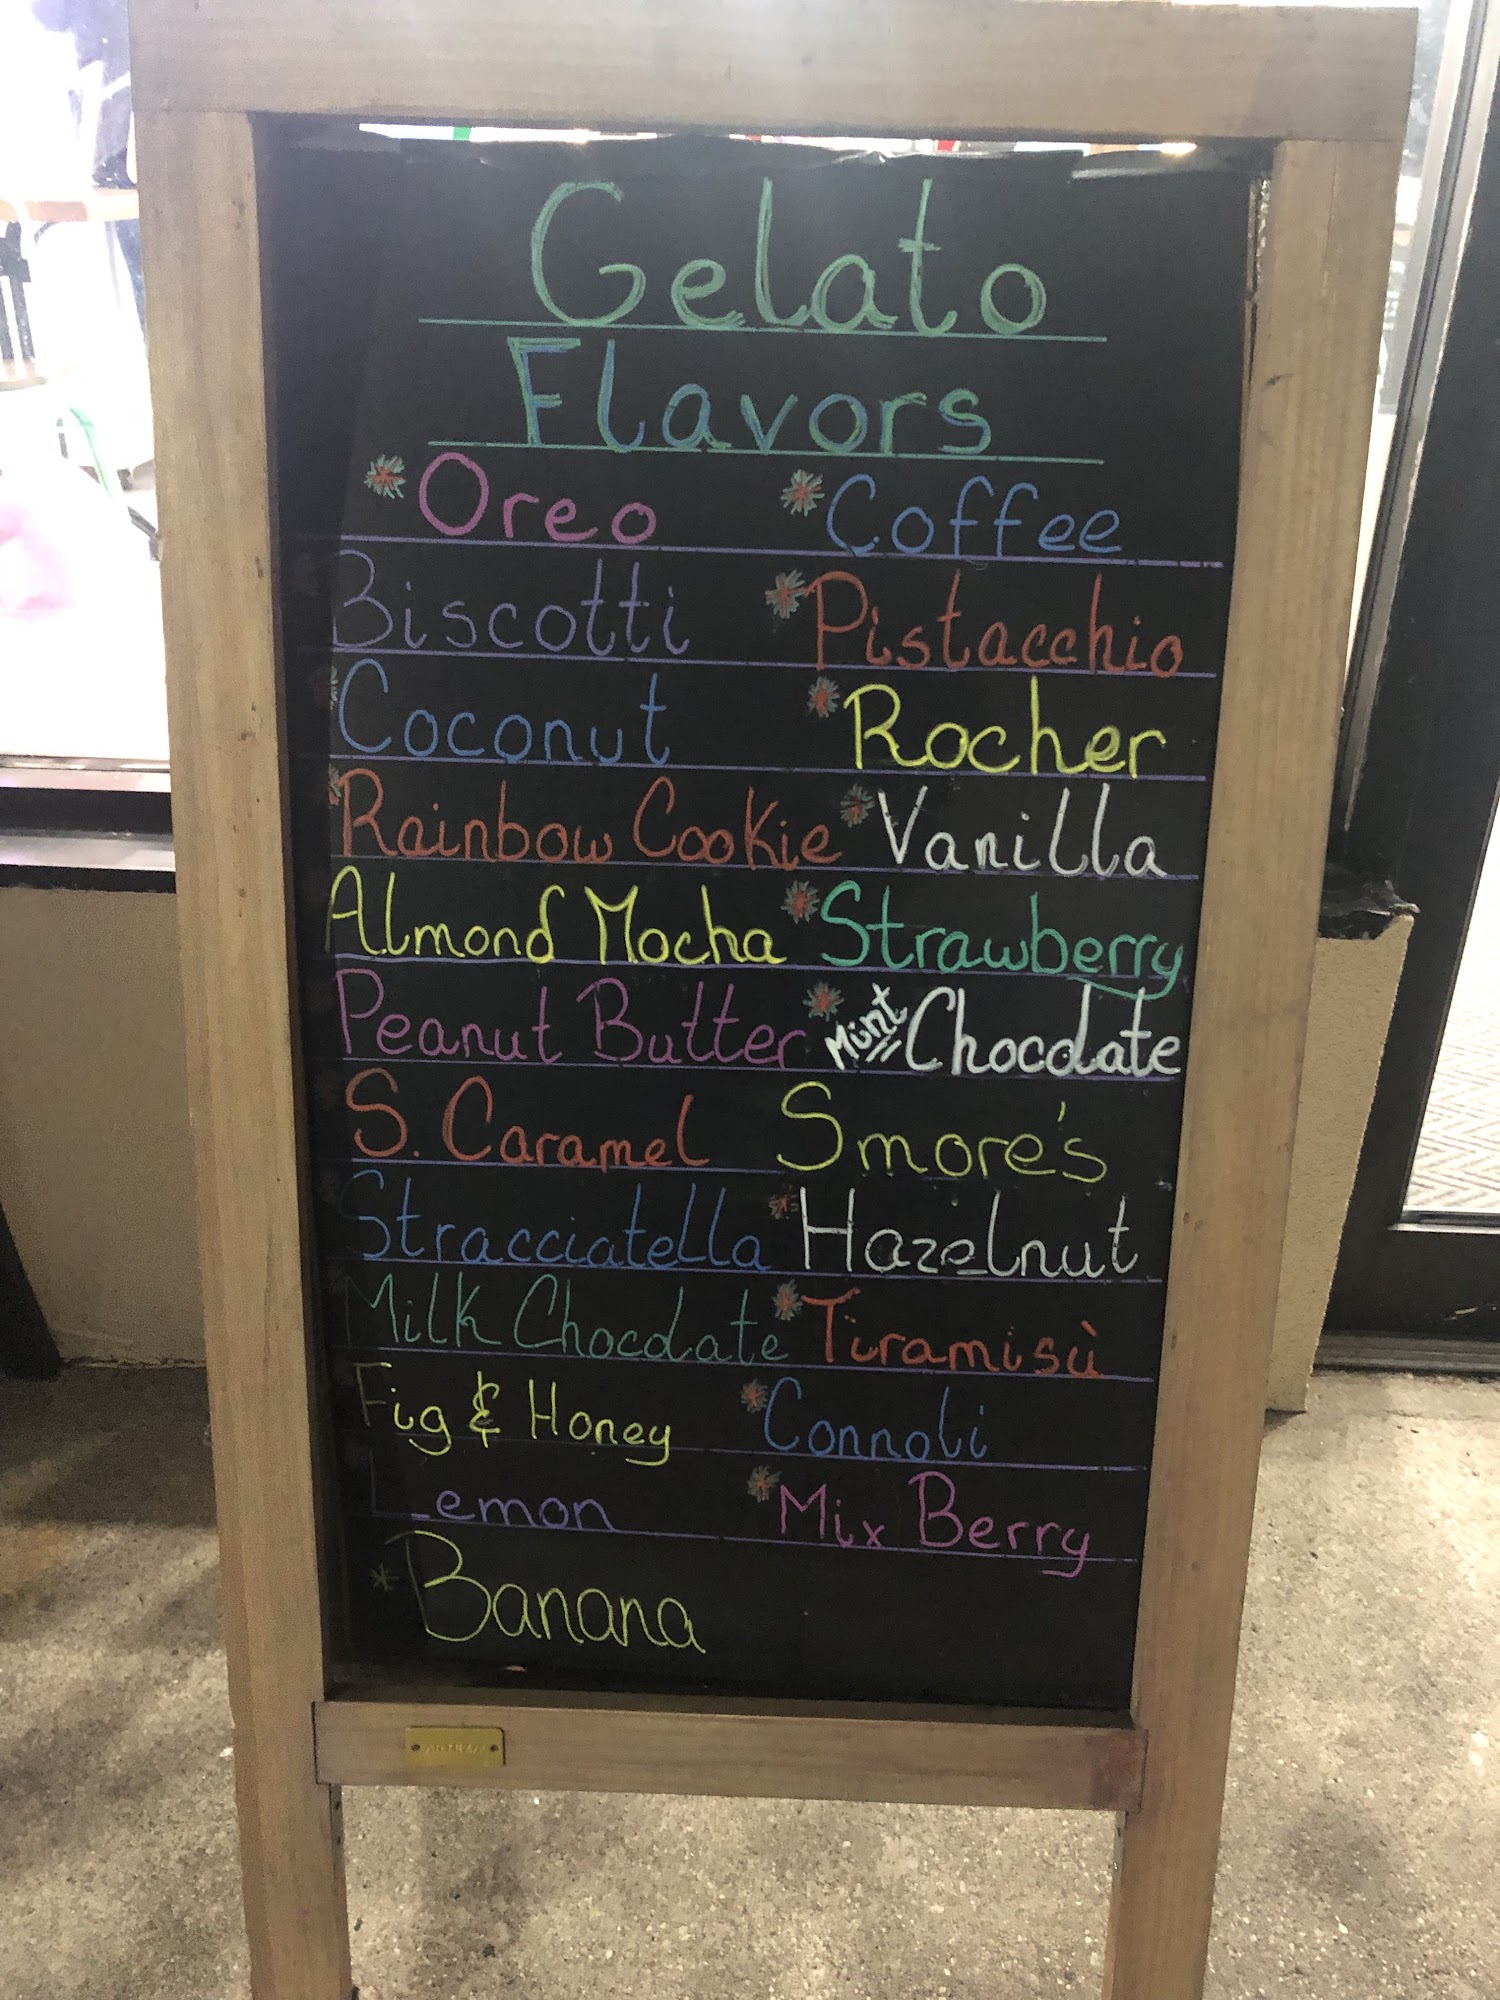 Gelato
Flavors
*Oreo *Coffee
Biscotti *Pistacchio
*Coconut *Rocher
*Rainbow Cookie *Vanilla
Almond Mocha *Strawberry
Peanut Butter *Mint Chocolate
S. Caramel Smore's
Stracciatella *Hazelnut
Milk Chocolate *Tiramisù
Fig & Honey *Connoli
Lemon *Mix Berry
*Banana